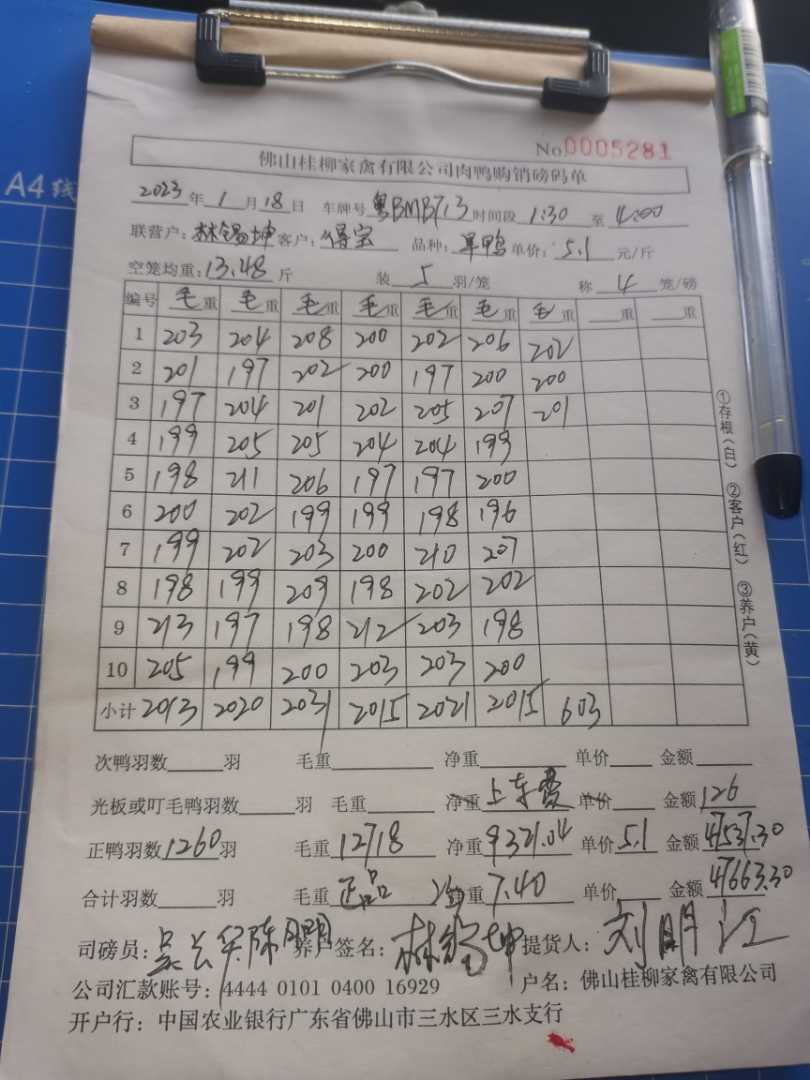 No 0005281
佛山桂柳家禽有限公司肉鸭购销磅码单
2023年1月18日 车牌号粤BMB713 时间段1:30至4:00
联营户：林锡坤 客户：得宝 品种：旱鸭 单价：5.1元/斤
空笼均重：13.48斤 装5羽/笼 称4笼/磅
编号 毛重 毛重 毛重 毛重 毛重 毛重 毛重 重 重
1 203 204 208 200 202 206 202
2 201 197 202 200 197 200 200
3 197 204 201 202 205 207 201
4 199 205 205 204 204 199
5 198 211 206 197 197 200
6 200 202 199 199 198 196
7 199 202 203 200 210 207
8 198 199 209 198 202 202
9 213 197 198 212 203 198
10 205 199 200 203 203 200
小计 2013 2020 2031 2015 2021 2015 603
①存根(白) ②客户(红) ③养户(黄)
次鸭羽数 羽 毛重 净重 单价 金额
光板或叮毛鸭羽数 羽 毛重 净重 上车费 单价 金额126
正鸭羽数1260羽 毛重12718 净重9321.04 单价5.1 金额47537.30
合计羽数 羽 毛重 正品 均重7.40 单价 金额47663.30
司磅员： 养户签名：林锡坤 提货人：刘明江
公司汇款账号：4444 0101 0400 16929 户名：佛山桂柳家禽有限公司
开户行：中国农业银行广东省佛山市三水区三水支行
A4